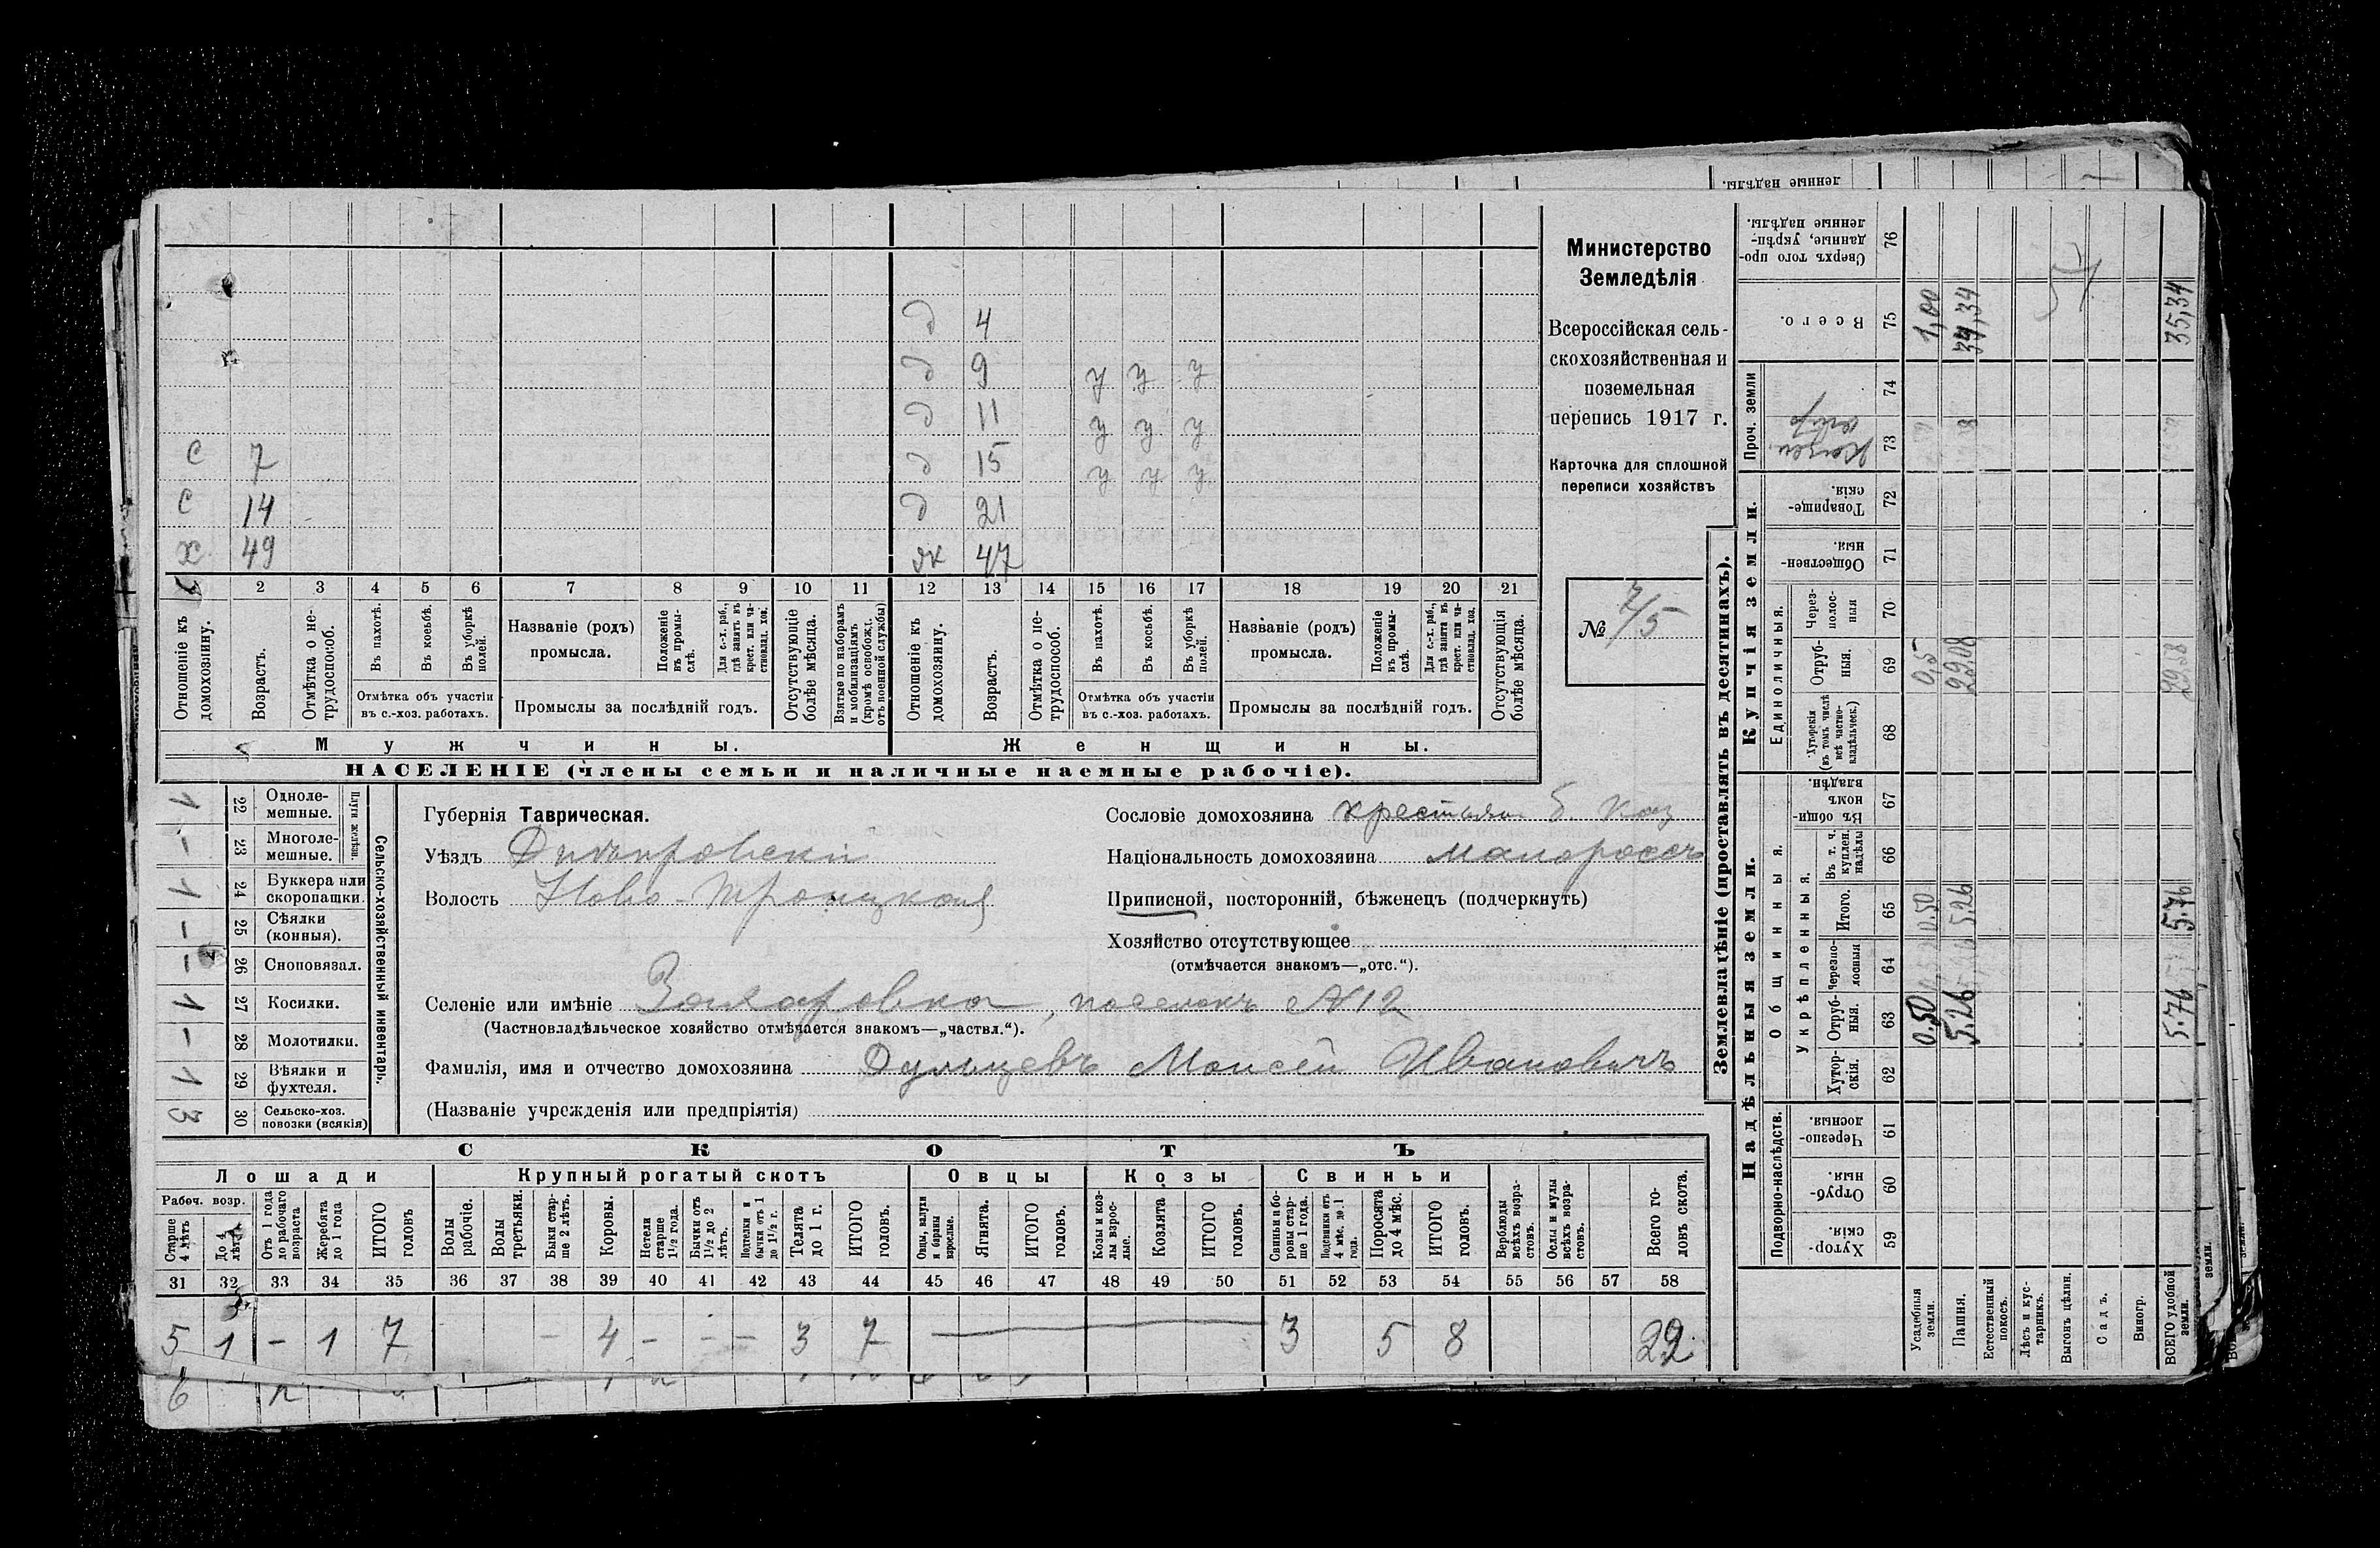 Министерство
Земледѣлія
Всероссійская сель-
скохозяйственная и
поземельная
перепись 1917 г.
Карточка для сплошной
переписи хозяйствъ
№ 7/5
д 4
д 9 у у у
д 11 у у у
с 7 д 15 у у у
с 14 д 21
х 49 ж 47
1 2 3 4 5 6 7 8 9 10 11 12 13 14 15 16 17 18 19 20 21
Отношеніе къ домохозяину.
Возрастъ.
Отмѣтка о не-трудоспособ.
Въ пахотѣ.
Въ косьбѣ.
Въ уборкѣ полей.
Отмѣтка объ участіи
въ с.-хоз. работахъ.
Названіе (родъ)
промысла.
Положеніе въ промы-слѣ.
Для с.-х. раб., гдѣ занятъ въ крест. или ча-стновлад. хоз.
Промыслы за послѣдній годъ.
Отсутствующіе болѣе мѣсяца.
Взятые по наборамъ и мобилизаціямъ (кромѣ освобожд. отъ военной службы)
Отношеніе къ домохозяину.
Возрастъ.
Отмѣтка о не-трудоспособ.
Въ пахотѣ.
Въ косьбѣ.
Въ уборкѣ полей.
Отмѣтка объ участіи
въ с.-хоз. работахъ.
Названіе (родъ)
промысла.
Положеніе въ промы-слѣ.
Для с.-х. раб., гдѣ занята въ крест. или ча-стновлад. хоз.
Промыслы за послѣдній годъ.
Отсутствующія болѣе мѣсяца.
Мужчины.
Женщины.
НАСЕЛЕНІЕ (члены семьи и наличные наемные рабочіе).
Сельско-хозяйственный инвентарь.
Плуги желѣзн.
1 22 Одноле-мешные.
– 23 Многоле-мешные.
1 24 Буккера или скоропашки.
– 25 Сѣялки (конныя).
– 26 Сноповязал.
1 27 Косилки.
– 28 Молотилки.
1 29 Вѣялки и фухтеля.
3 30 Сельско-хоз. повозки (всякія)
Губернія Таврическая.
Уѣздъ Днѣпровскій
Волость Ново-Троицкая
Селеніе или имѣніе , поселокъ №12
(Частновладѣльческое хозяйство отмѣчается знакомъ—„частвл.“).
Фамилія, имя и отчество домохозяина Дульцевъ Моисей Ивановичъ
(Названіе учрежденія или предпріятія)
Сословіе домохозяина крестьян. б. каз
Національность домохозяина малороссъ
Приписной, посторонній, бѣженецъ (подчеркнуть)
Хозяйство отсутствующее
(отмѣчается знакомъ—„отс.“).
СКОТЪ
Лошади
Крупный рогатый скотъ
Овцы
Козы
Свиньи
Рабоч. возр.
Старше 4 лѣтъ
До 4 лѣтъ
Отъ 1 года до рабочаго возраста
Жеребята до 1 года
ИТОГО головъ
Волы рабочіе.
Волы третьяки.
Быки стар-ше 2 лѣтъ.
Коровы.
Нетели старше 1½ года.
Бычки отъ 1½ до 2 лѣтъ.
Подтелки и бычки отъ 1 до 1½ г.
Телята до 1 г.
ИТОГО головъ.
Овцы, валухи и бараны взрослые.
Ягнята.
ИТОГО головъ.
Козы и коз-лы взрос-лые.
Козлята
ИТОГО головъ.
Свиньи и бо-ровы стар-ше 1 года.
Подсвинки отъ 4 мѣс. до 1 года.
Поросята до 4 мѣс.
ИТОГО головъ.
Верблюды всѣхъ возра-стовъ.
Ослы и мулы всѣхъ возра-стовъ.
Всего го-ловъ скота.
31 32 33 34 35 36 37 38 39 40 41 42 43 44 45 46 47 48 49 50 51 52 53 54 55 56 57 58
5 1 – 1 7 – 4 – – – 3 7 3 5 8 22
6
Землевладѣніе (проставлять въ десятинахъ).
Надѣльныя земли.
Купчія земли.
Проч. земли
Подворно-наслѣдств.
Общинныя.
Укрѣпленныя.
Единоличныя.
Хутор-скія. 59
Отруб-ныя. 60
Черезпо-лосныя. 61
Хутор-скія. 62
Отруб-ныя. 63
Черезпо-лосныя 64
Итого. 65
Въ т. ч. куплен. надѣлы 66
Въ общин-номъ владѣн. 67
Хуторскія (въ томъ числѣ всѣ частно-владѣльческ.) 68
Отруб-ныя. 69
Через-полос-ныя 70
Обществен-ныя. 71
Товарище-скія. 72
73
74
Всего. 75
Сверхъ того про-данные, укрѣп-ленные надѣлы. 76
Усадебныя земли. 0.50 0.50 0,5 1,00
Пашня. 5.26 5.26 29.08 34,34
Естественный покосъ.
Лѣсъ и кус-тарникъ.
Выгонъ цѣлин.
Садъ.
Виногр.
ВСЕГО удобной земли. 5.76 5.76 29.58 35,34
ленные надѣлы.
земли.